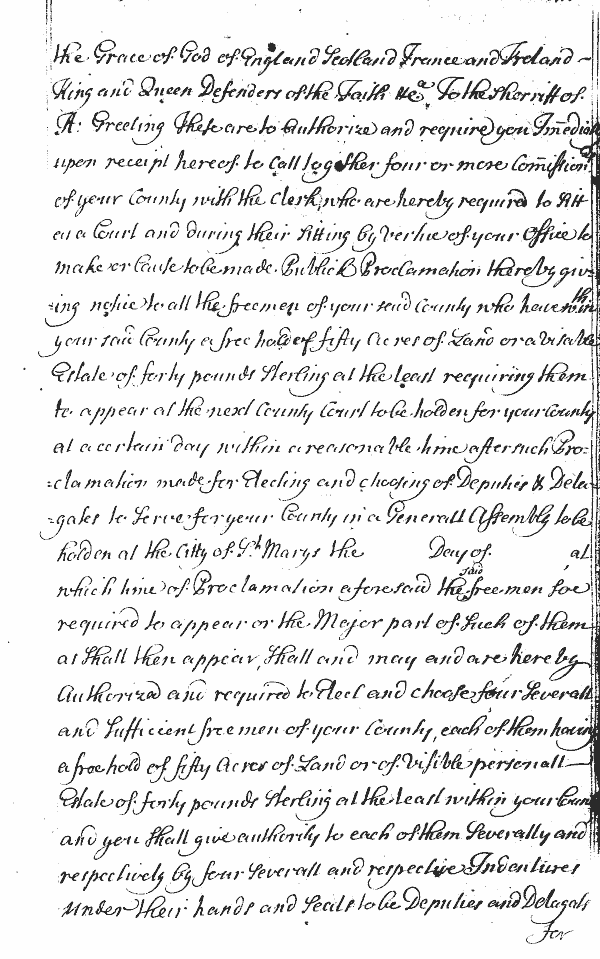 the Grace of God of England Scotland France and Ireland ~
King and Queen Defenders of the Faith &ca To the Sherriff of
A: Greeting These are to Authorize and require you Imediat
upon receipt hereof to Call together four or more Comission
of your County with the Clerk who are hereby required to Sitt
as a Court and during their Sitting by vertue of your Office to
make or Cause to be made Publick Proclamation thereby giv
=ing notice to all the freemen of your said County who have within
your said County a free hold of fifty Acres of Land or a visable
Estate of forty pounds Sterling at the least requiring them
to appear at the next County Court to be holden for your County
at a certain day within a reasonable time after such Pro=
=clamation made for Electing and choosing of Deputies & Dela=
=gates to Serve for your County in a Generall Assembly to be
holden at the Citty of St Marys the Day of at
which time of Proclamation aforesaid the said freemen soe
required to appear or the Major part of Such of them
as Shall then appear, Shall and may and are hereby
Authorized and required to Elect and choose four Severall
and Sufficient freemen of your County, each of them having
a freehold of fifty Acres of Land or of Visible personall
Estate of forty pounds Sterling at the least within your Coun
and you Shall give authority to each of them Severally and
respectively by four Severall and respective Indentures
under their hands and Seals to be Deputies and Delagats
For